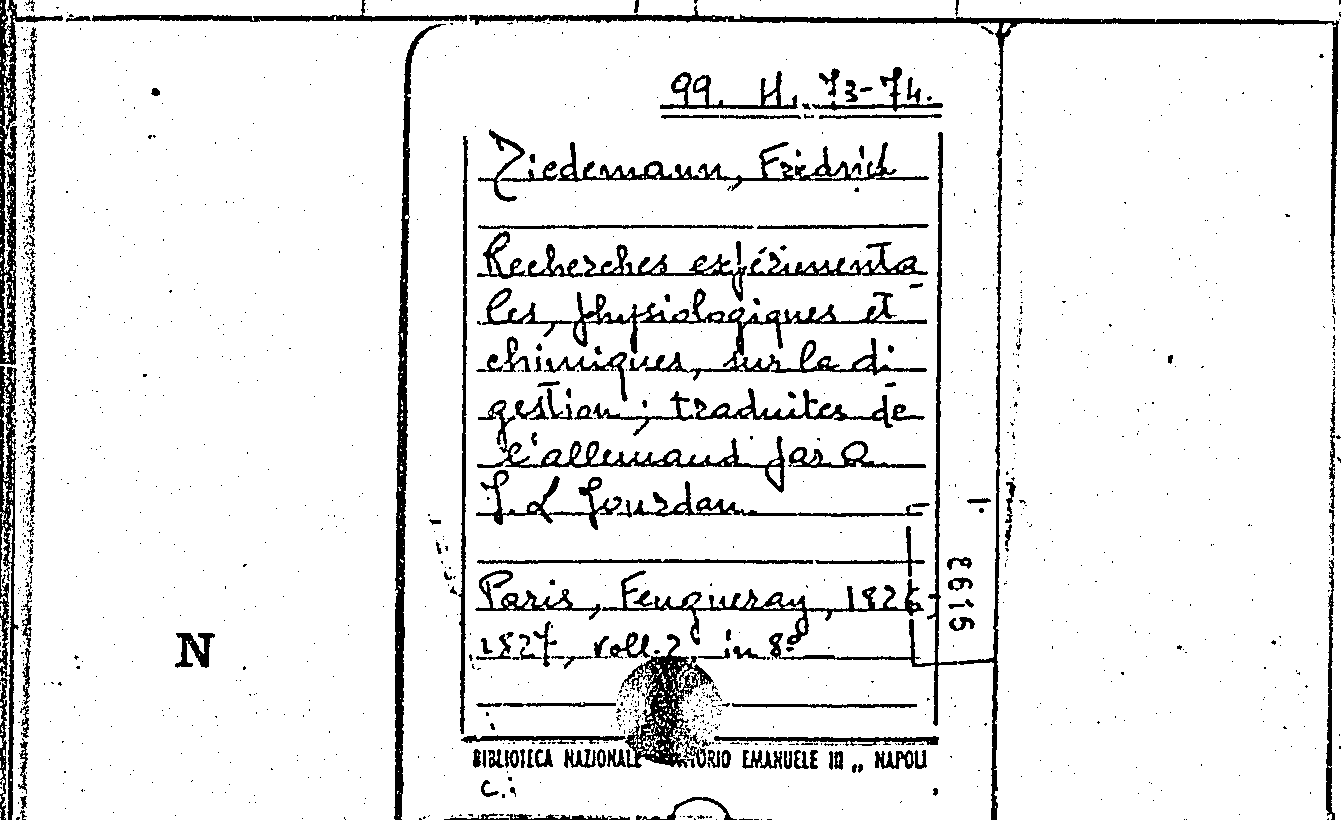 99. H. 73-74.
Tiedemann, Friedrich
Recherches expérimenta
les, physiologiques et
chimiques, sur la di-
gestion ; traduites de
l'allemand par A
J. L Jourdan.
Paris, Feugueray, 1826-
1827, voll. 2 in 8º
2615
N
BIBLIOTECA NAZIONALE VITTORIO EMANUELE III „ NAPOLI
c.i